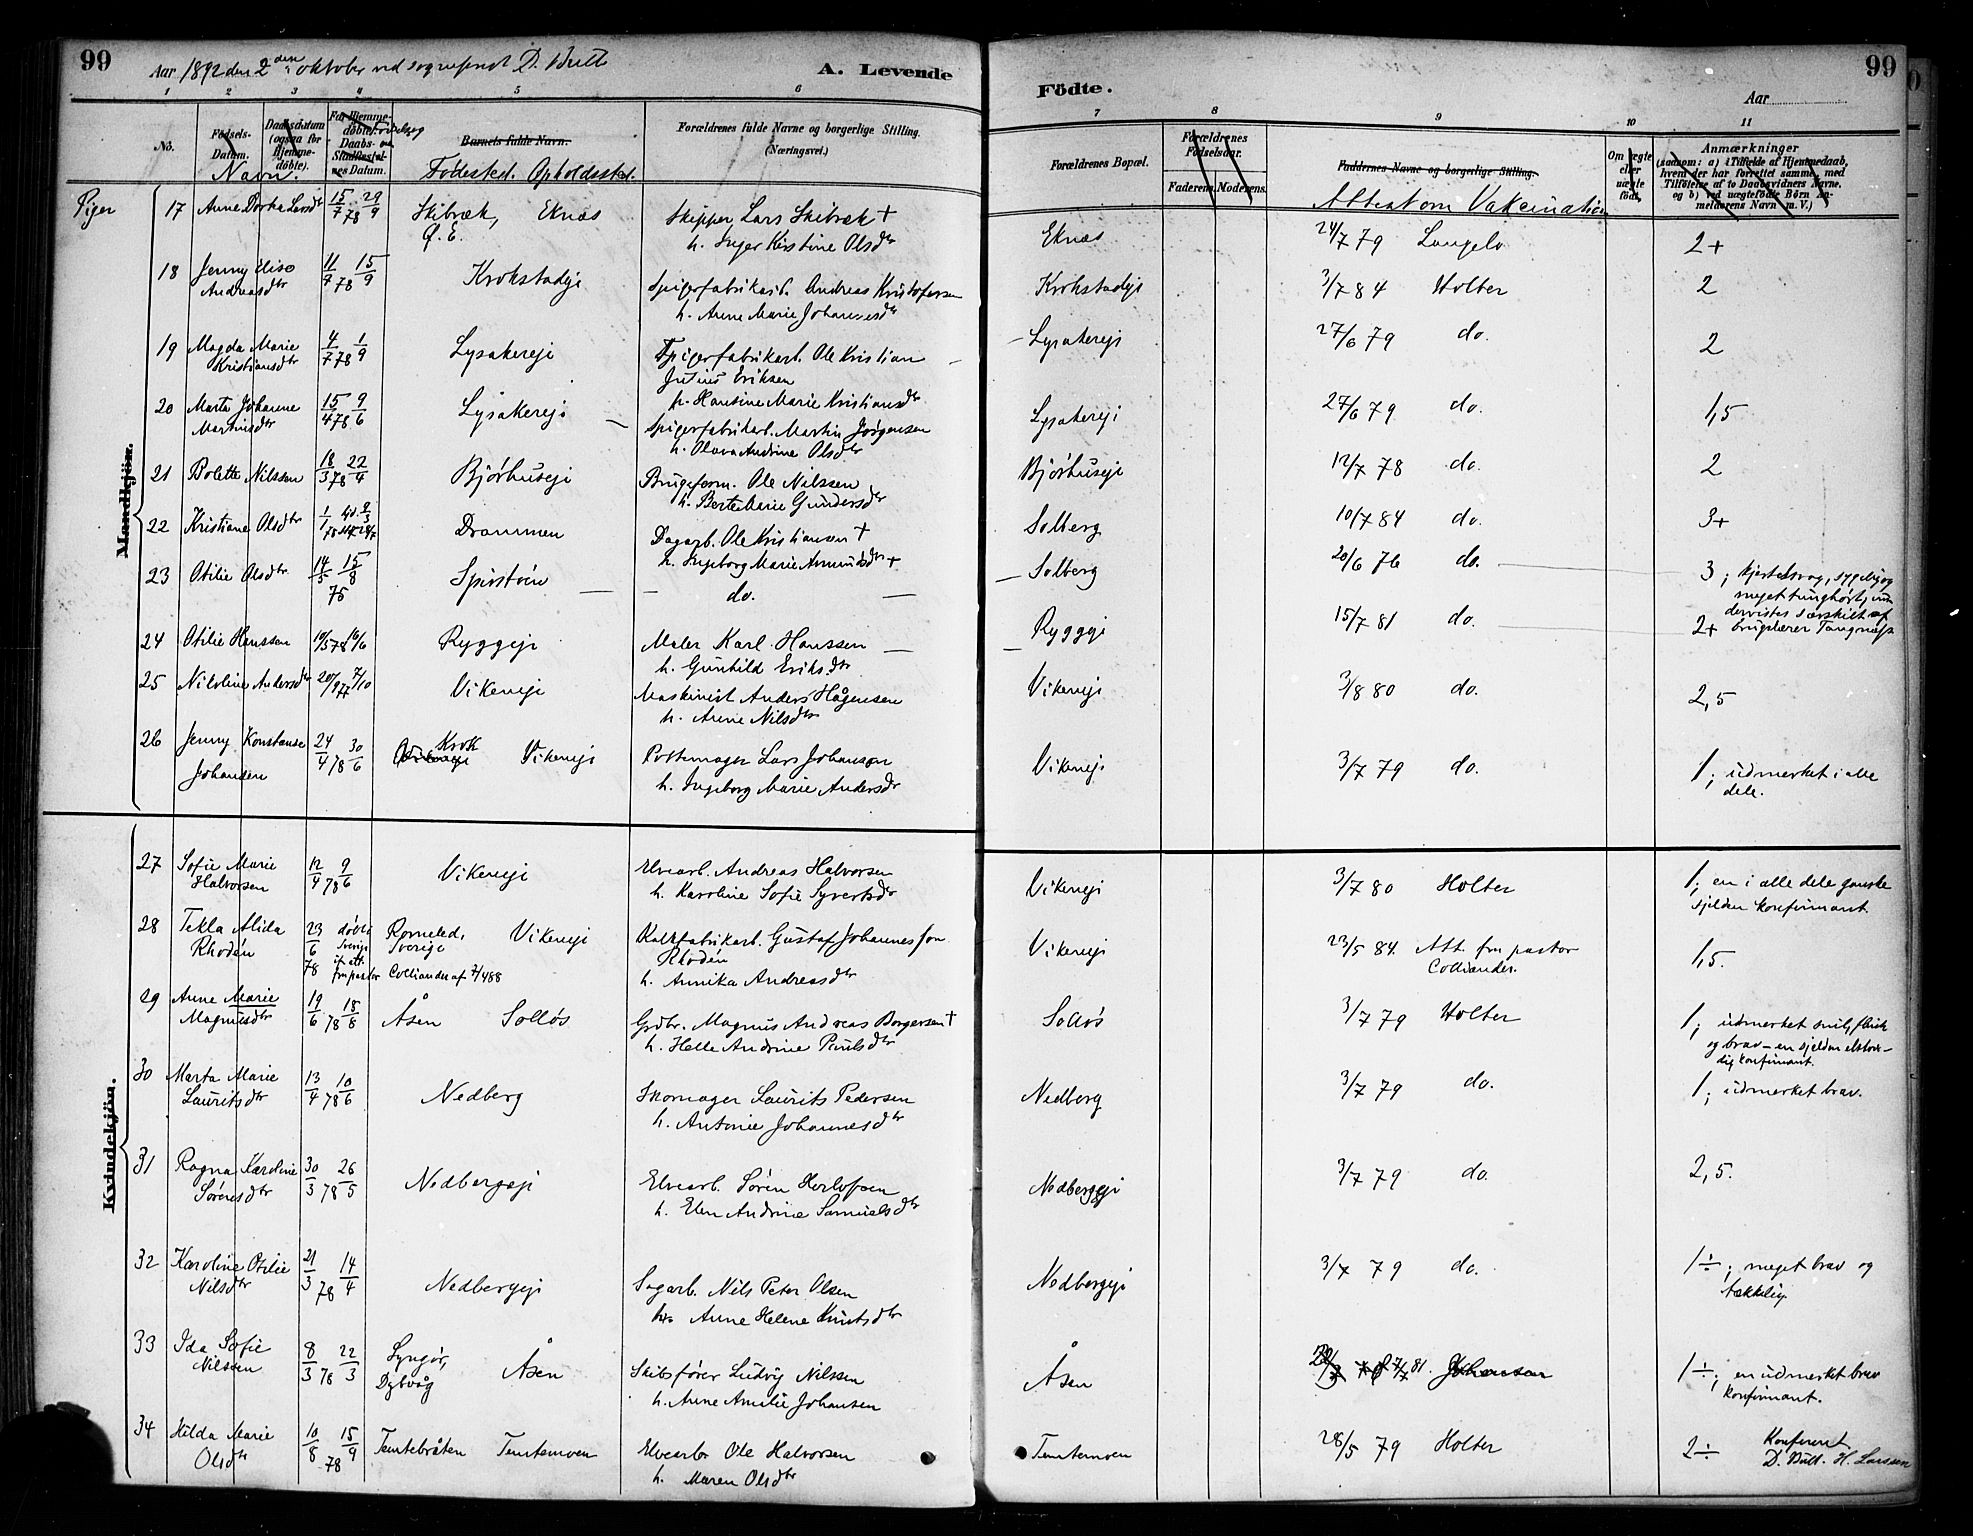 99
Aar 1892 den 2den oktober ved sogneprest D. Bull
A. Levende
Födte.
Aar
99
1 2 3 4 5 6 7 8 9 10 11
No.
Födsels-Datum.
Navn.
Daabsdatum (ogsaa for Hjemme-döbte).
Barnets fulde Navn.
Fødested. Opholdssted.
Forældrenes fulde Navne og borgerlige Stilling.
(Næringsvei.)
Forældrenes Bopæl.
Forældrenes Födselsaar.
Faderens. Moderens.
Faddernes Navne og borgerlige Stilling.
Attest om Vakcination
Om ægte eller uægte födt.
Anmærkninger
(saasom: a) i Tilfælde af Hjemmedaab,
hvem der har forrettet samme, med
Tilföielse af to Daabsvidners Navne,
og b) ved uægtefödte Börn An-
melderens Navn m. V.)
Piger
Mandkjön.
17 Anne Dortea Larsdtr 15/7 78 29/9 Skibvæk, Ø.E. Eknæs Skipper Lars Skibvæk + Eknæs 24/7 79 Langelv 2+
h. Inger Kristine Olsdtr
18 Jenny Elise Andreasdtr 11/7 78 15/9 Krokstadeje Spigerfabrikarb. Andreas Kristofersen Krokstadeje 3/7 84 Holter 2
h. Anne Marie Johannesdtr
19 Magda Marie Kristiansdtr 4/7 78 1/9 Lysakereje Spigerfabrikarb. Ole Kristian Lysakereje 27/6 79 do. 2
Julius Eriksen
h. Hansine Marie Kristiansdtr
20 Marta Johanne Martinsdtr 15/4 78 9/6 Lysakereje Spigerfabrikarb. Martin Jørgensen Lysakereje 27/6 79 do. 1,5
h. Olava Andrine Olsdtr
21 Bolette Nilssen 18/3 78 22/4 Bjørhuseje Brugsform. Ole Nilssen Bjørhuseje 12/7 78 do. 2
h. Berte Marie Gundersdtr
22 Kristiane Olsdtr 1/1 78 Drammen Dagarb. Ole Kristiansen + Solberg 10/7 84 do. 3+
h. Ingeborg Marie Amundsdtr +
23 Otilie Olsdtr 14/5 15/8 76 do. Solberg 20/6 76 do. 3; kjertelsvag, sygelig og
meget tunghørt, un
dervistes særskilt af
24 Otilie Hanssen 10/3 78 10/6 Ryggeje Maler Karl Hanssen Ryggeje 15/7 81 do. 2+ brugslærer Tangnæs
h. Gunhild Eriksdtr
25 Nicoline Andersdtr 20/9 77 7/10 Vikeneje Maskinist Anders Hågensen Vikeneje 3/8 80 do. 2,5
h. Anne Nilsdtr
26 Jenny Konstanse Johansen 24/4 78 30/6 Krok Vikeneje Pottemager Lars Johansen Vikeneje 3/7 79 do. 1; udmerket i alle dele.
h. Ingeborg Marie Andersdtr
Kvindekjön.
27 Sofie Marie Halvorsen 12/4 78 9/6 Vikeneje Elvearb. Andreas Halvorsen Vikeneje 3/7 80 Holter 1; en i alle dele ganske
sjelden konfirmant.
h. Karoline Sofie Syvertsdtr
28 Tekla Alida Rhodén 23/6 78 døbt i Sverige if. att. fra pastor Colliander af 7/4 88 Sverige Vikeneje Kalkfabrikarb. Gustaf Johannesson Rhodén Vikeneje 23/5 84. Att. fra pastor Colliander. 1,5.
h. Annika Andreasdtr
29 Anne Marie Magnusdtr 19/6 78 18/8 Åsen Solløs Grdbr. Magnus Andreas Borgersen + Solløs 3/7 79 Holter 1; udmerket snil, flink
og brav – en sjelden elskvær-
dig konfirmant.
h. Helle Andrine Paulsdtr
30 Marta Marie Lauritsdtr 13/4 78 10/6 Nedberg Skomager Laurits Pedersen Nedberg 3/7 79 do. 1; udmerket brav.
h. Antonie Johannesdtr
31 Ragna Karoline Sørensdtr 30/3 78 26/5 Nedbergeje Elvearb. Søren Herlofsen Nedbergeje 3/7 79 do. 2,5.
h. Elen Andrine Samuelsdtr
32 Karoline Otilie Nilsdtr 21/3 78 14/4 Nedbergeje Sagarb. Nils Peter Olsen Nedbergeje 3/7 79 do. 1÷; meget brav og
tækkelig.
h. Anne Helene Knutsdtr
33 Ida Sofie Nilssen 8/3 78 22/3 Lyngør, Dybvåg Åsen Skibsfører Ludvig Nilssen Åsen 7/7 81. Johansen 1÷; en udmerket brav
konfirmant.
h. Anne Amalie Johansen
34 Hilda Marie Olsdtr 10/8 78 15/9 Temtebråten Temtemoen Elvearbr Ole Halvorsen Temtemoen 28/5 79 Holter 2÷
h. Maren Olsdtr
Konfereret
D. Bull. H. Larssen